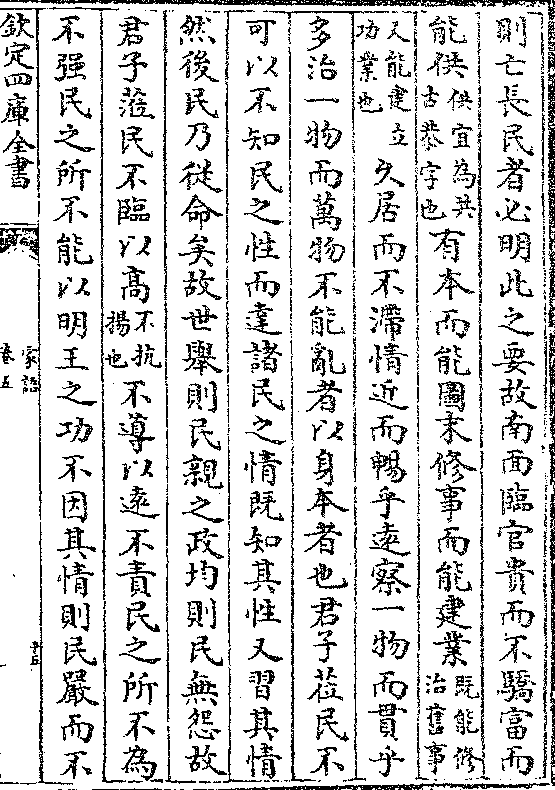 則亡長民者必明此之要故南面臨官貴而不驕富而
能供供宜為共古恭字也有本而能圖末修事而能建業既能修治舊事
又能建立功業也久居而不滯情近而暢乎遠察一物而貫乎
多治一物而萬物不能亂者以身本者也君子莅民不
可以不知民之性而達諸民之情既知其性又習其情
然後民乃從命矣故世舉則民親之政均則民無怨故
君子莅民不臨以高不抗揚也不導以遠不責民之所不為
不强民之所不能以明王之功不因其情則民嚴而不
欽定四庫全書
家語
卷五
十五